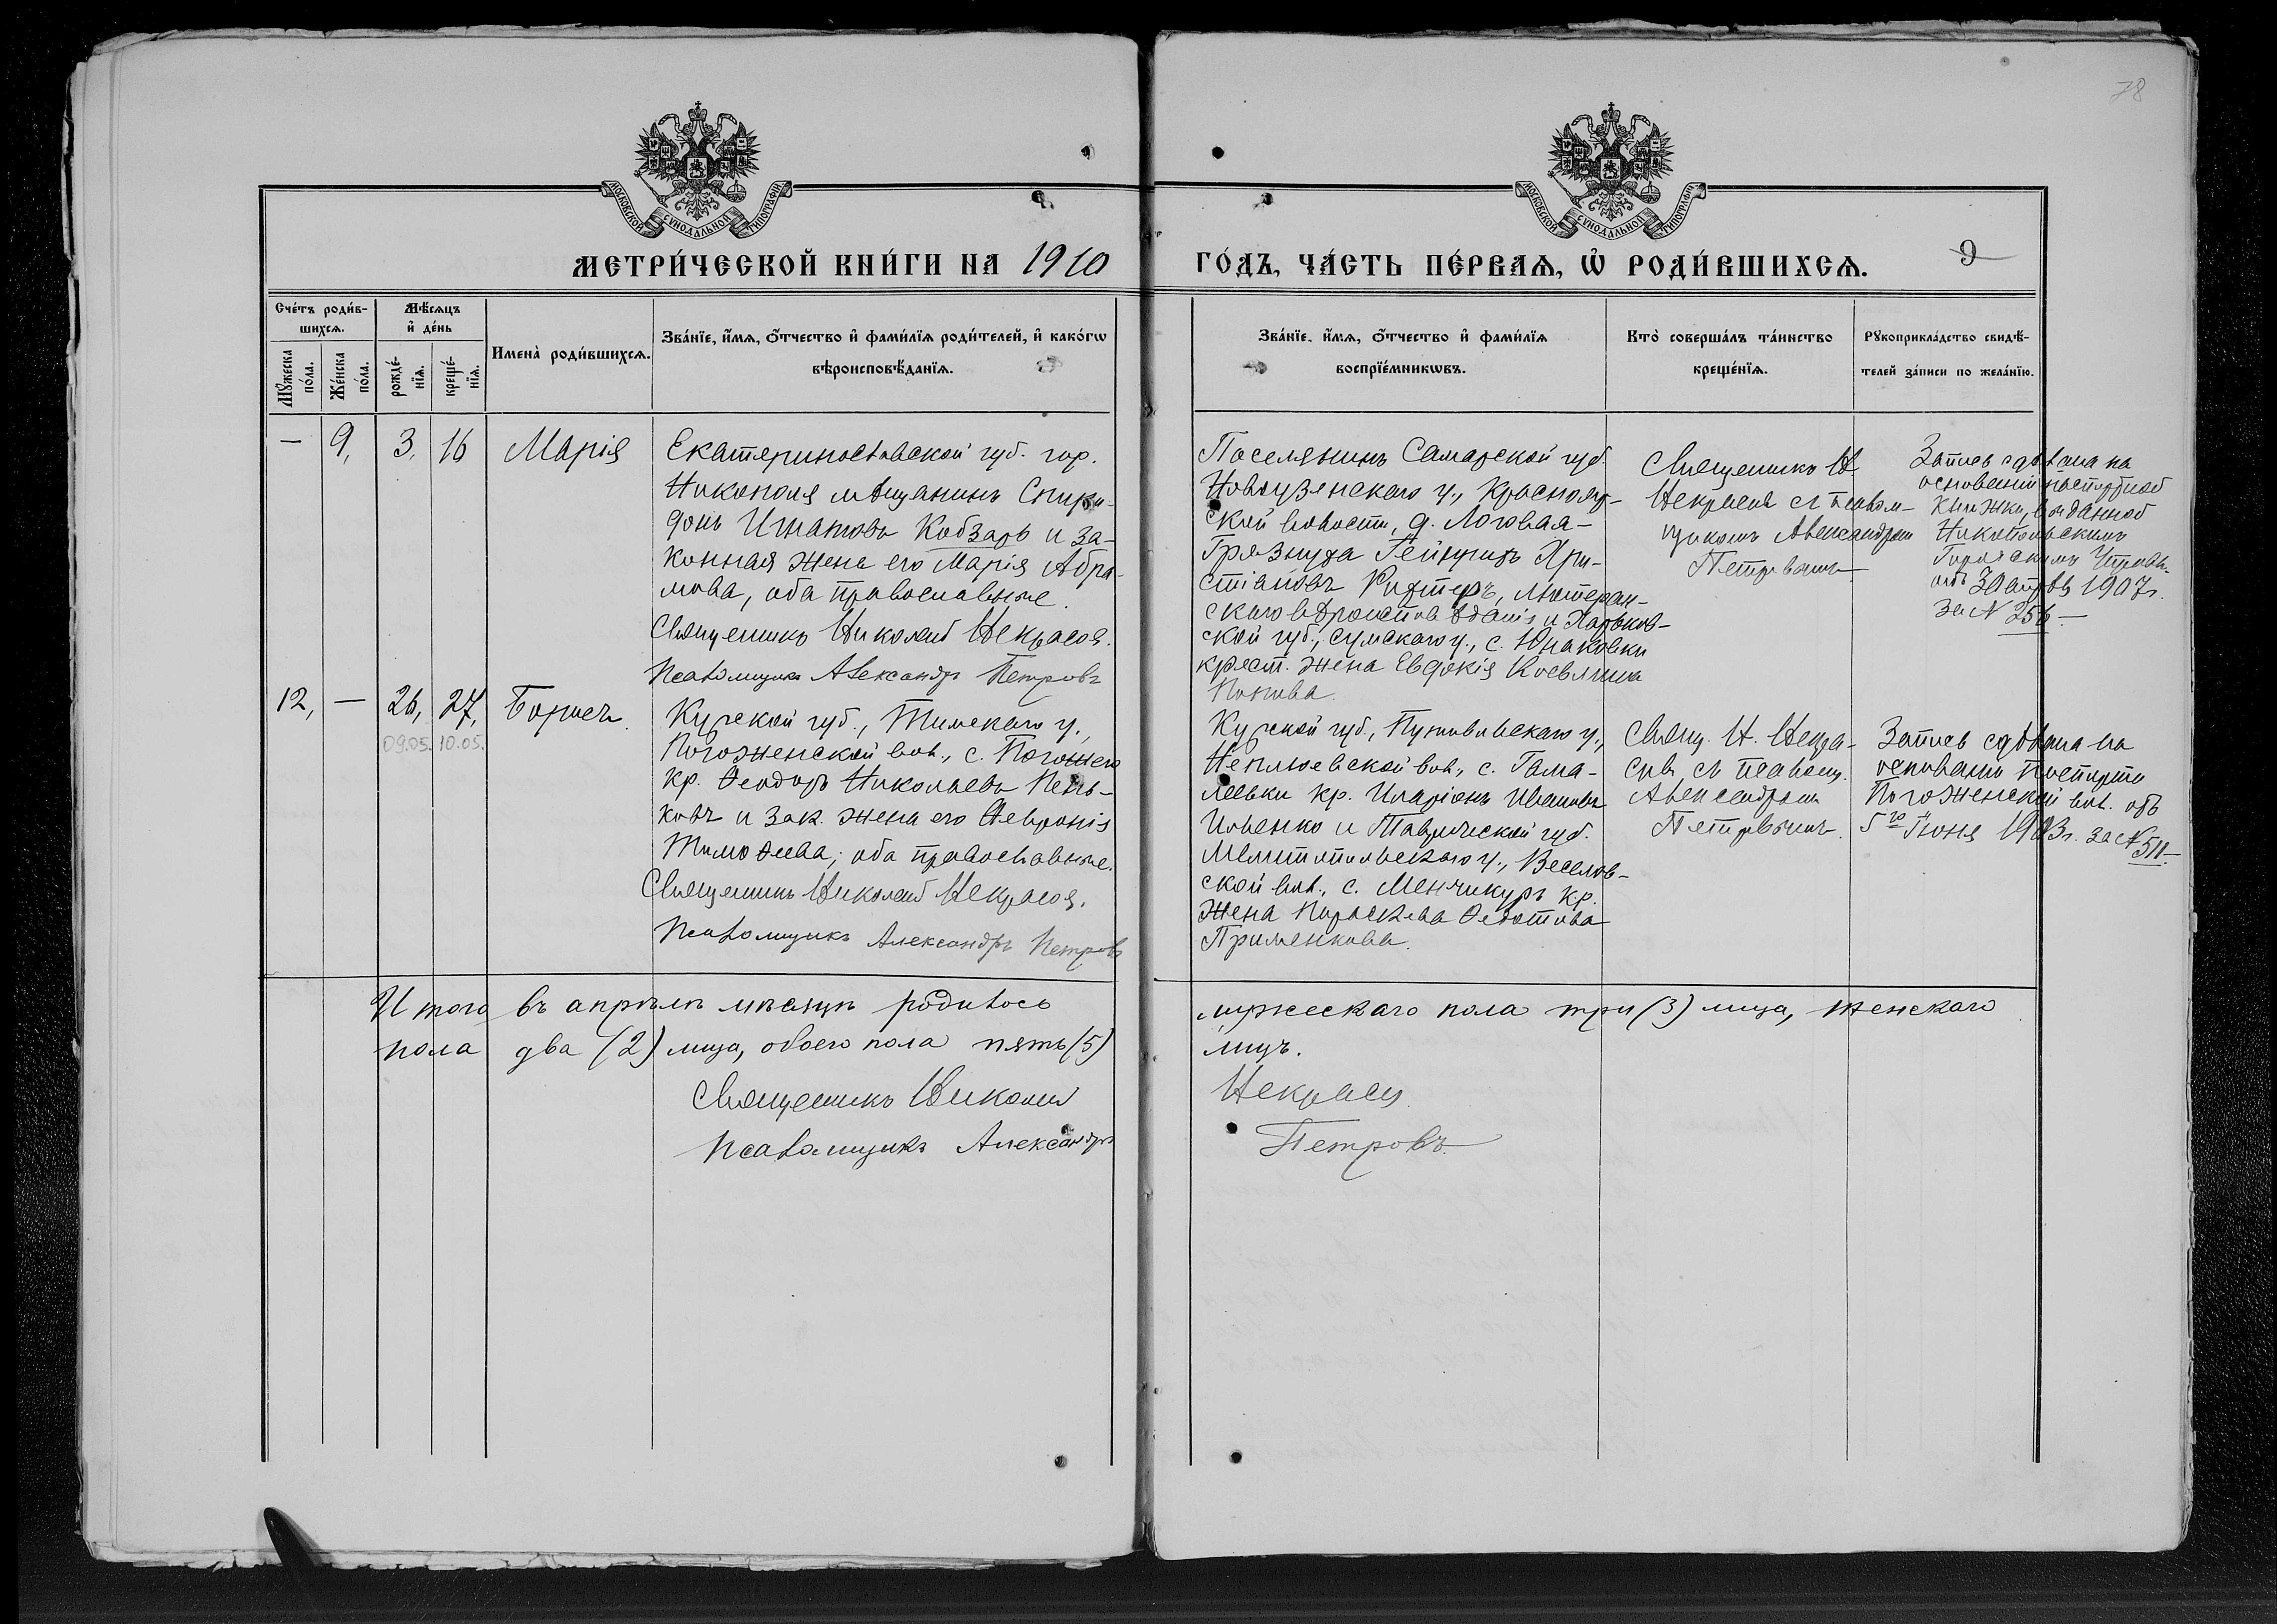 78
МОСКОВСКОЙ СѴНОДАЛЬНОЙ ТИПОГРАФІИ
МОСКОВСКОЙ СѴНОДАЛЬНОЙ ТИПОГРАФІИ
МЕТРИ́ЧЕСКОЙ КНИ́ГИ НА 1910
ГО́ДЪ, ЧА́СТЬ ПЕ́РВАѦ, Ѡ҆ РОДИ́ВШИХСѦ. 9
Сче́тъ роди́в-
шихсѧ.
Мѣ́сѧцъ
и҆ де́нь
Мꙋ́жеска
по́ла.
Же́нска
по́ла.
рожде́-
нїѧ.
креще́-
нїѧ.
Имена̀ роди́вшихсѧ.
Зва́нїе, и҆́мѧ, ѻ҆́тчество и҆ фами́лїѧ роди́телей, и҆ како́гѡ
вѣроисповѣ́данїѧ.
Зва́нїе, и҆́мѧ, ѻ҆́тчество и҆ фами́лїѧ
воспрїе́мникѡвъ.
Кто̀ соверша́лъ та́инство
креще́нїѧ.
Рꙋкоприкла́дство свидѣ́-
телей за́писи по жела́нїю.
— 9, 3, 16 Марія
Екатеринославской губ. гор.
Никополя мѣщанинъ Спири-
донъ Игнатовъ Кобзарь и за-
конная жена его Марія Абра-
мова, оба православные.
Священникъ Николай Некрасовъ.
Псаломщикъ Александръ Петровъ
Поселянинъ Самарской губ.
Новоузенскаго у., Краснояр-
ской волости, д. Логовая-
Грязнуха Гейнрихъ Хри-
стіановъ Рихтеръ, лютеран-
скаго вѣроисповѣданія и Харьков-
ской губ., Сумскаго у., с. Юнаковки
крест. жена Евдокія
Попова.
Священникъ Н.
Некрасовъ съ псалом-
щикомъ Александромъ
Петровымъ
Запись сдѣлана на
основаніи паспортной
книжки, выданной
Никопольскимъ
Городскимъ Управл.
отъ 30 апрѣля 1907 г.
за № 256 —
12, — 26, 27, Борисъ
09.05. 10.05.
Курской губ., Тимскаго у.,
Погоженской вол., с. Погожаго
кр. Ѳеодоръ Николаевъ Пень-
ковъ и зак. жена его Февронія
Тимоѳеева; оба православные.
Священникъ Николай Некрасовъ.
Псаломщикъ Александръ Петровъ
Курской губ., Путивльскаго у.,
Неплюевской вол., с. Гама-
леевки кр. Иларіонъ Ивановъ
Ильенко и Таврической губ.
Мелитопольскаго у., Веселов-
ской вол., с. Менчикуръ кр.
жена Параскева Ѳедотова
Применкова.
Свящ. Н. Некра-
совъ съ псаломщ.
Александромъ
Петровымъ
Запись сдѣлана на
основаніи паспорта
Погоженской вол. отъ
5го Іюня 1903 г. за № 511 —
Итого въ апрѣлѣ мѣсяцѣ родилось
мужескаго пола три (3) лица, женскаго
пола два (2) лица, обоего пола пять (5)
лицъ.
Священникъ Николай
Некрасовъ
Псаломщикъ Александръ
Петровъ.